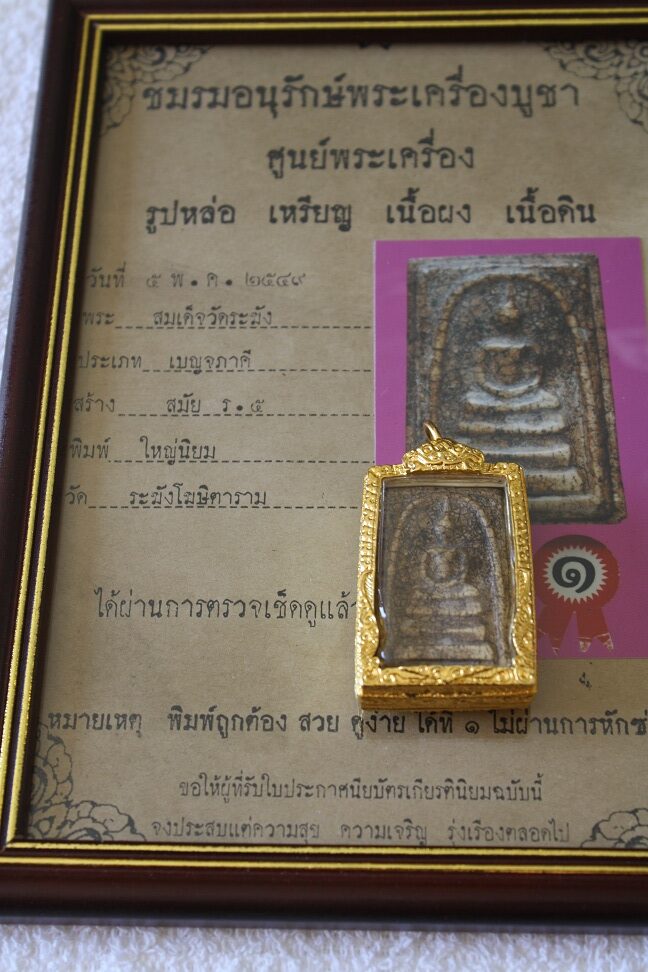 ชมรมอนุรักษ์พระเครื่องบูชา
ศูนย์พระเครื่อง
รูปหล่อ เหรียญ เนื้อผง เนื้อดิน
วันที่ ๕ พ.ค. ๒๕๔๙
พระ สมเด็จวัดระฆัง
ประเภท เบญจภาคี
สร้าง สมัย ร.๕
พิมพ์ ใหญ่นิยม
วัด ระฆังโฆษิตาราม
๑
ได้ผ่านการตรวจเช็คดูแล้ว
หมายเหตุ พิมพ์ถูกต้อง สวย ดูง่าย ได้ที่ ๑ ไม่ผ่านการหักซ่
ขอให้ผู้ที่รับใบประกาศนียบัตรเกียรตินิยมฉบับนี้
จงประสบแต่ความสุข ความเจริญ รุ่งเรืองตลอดไป